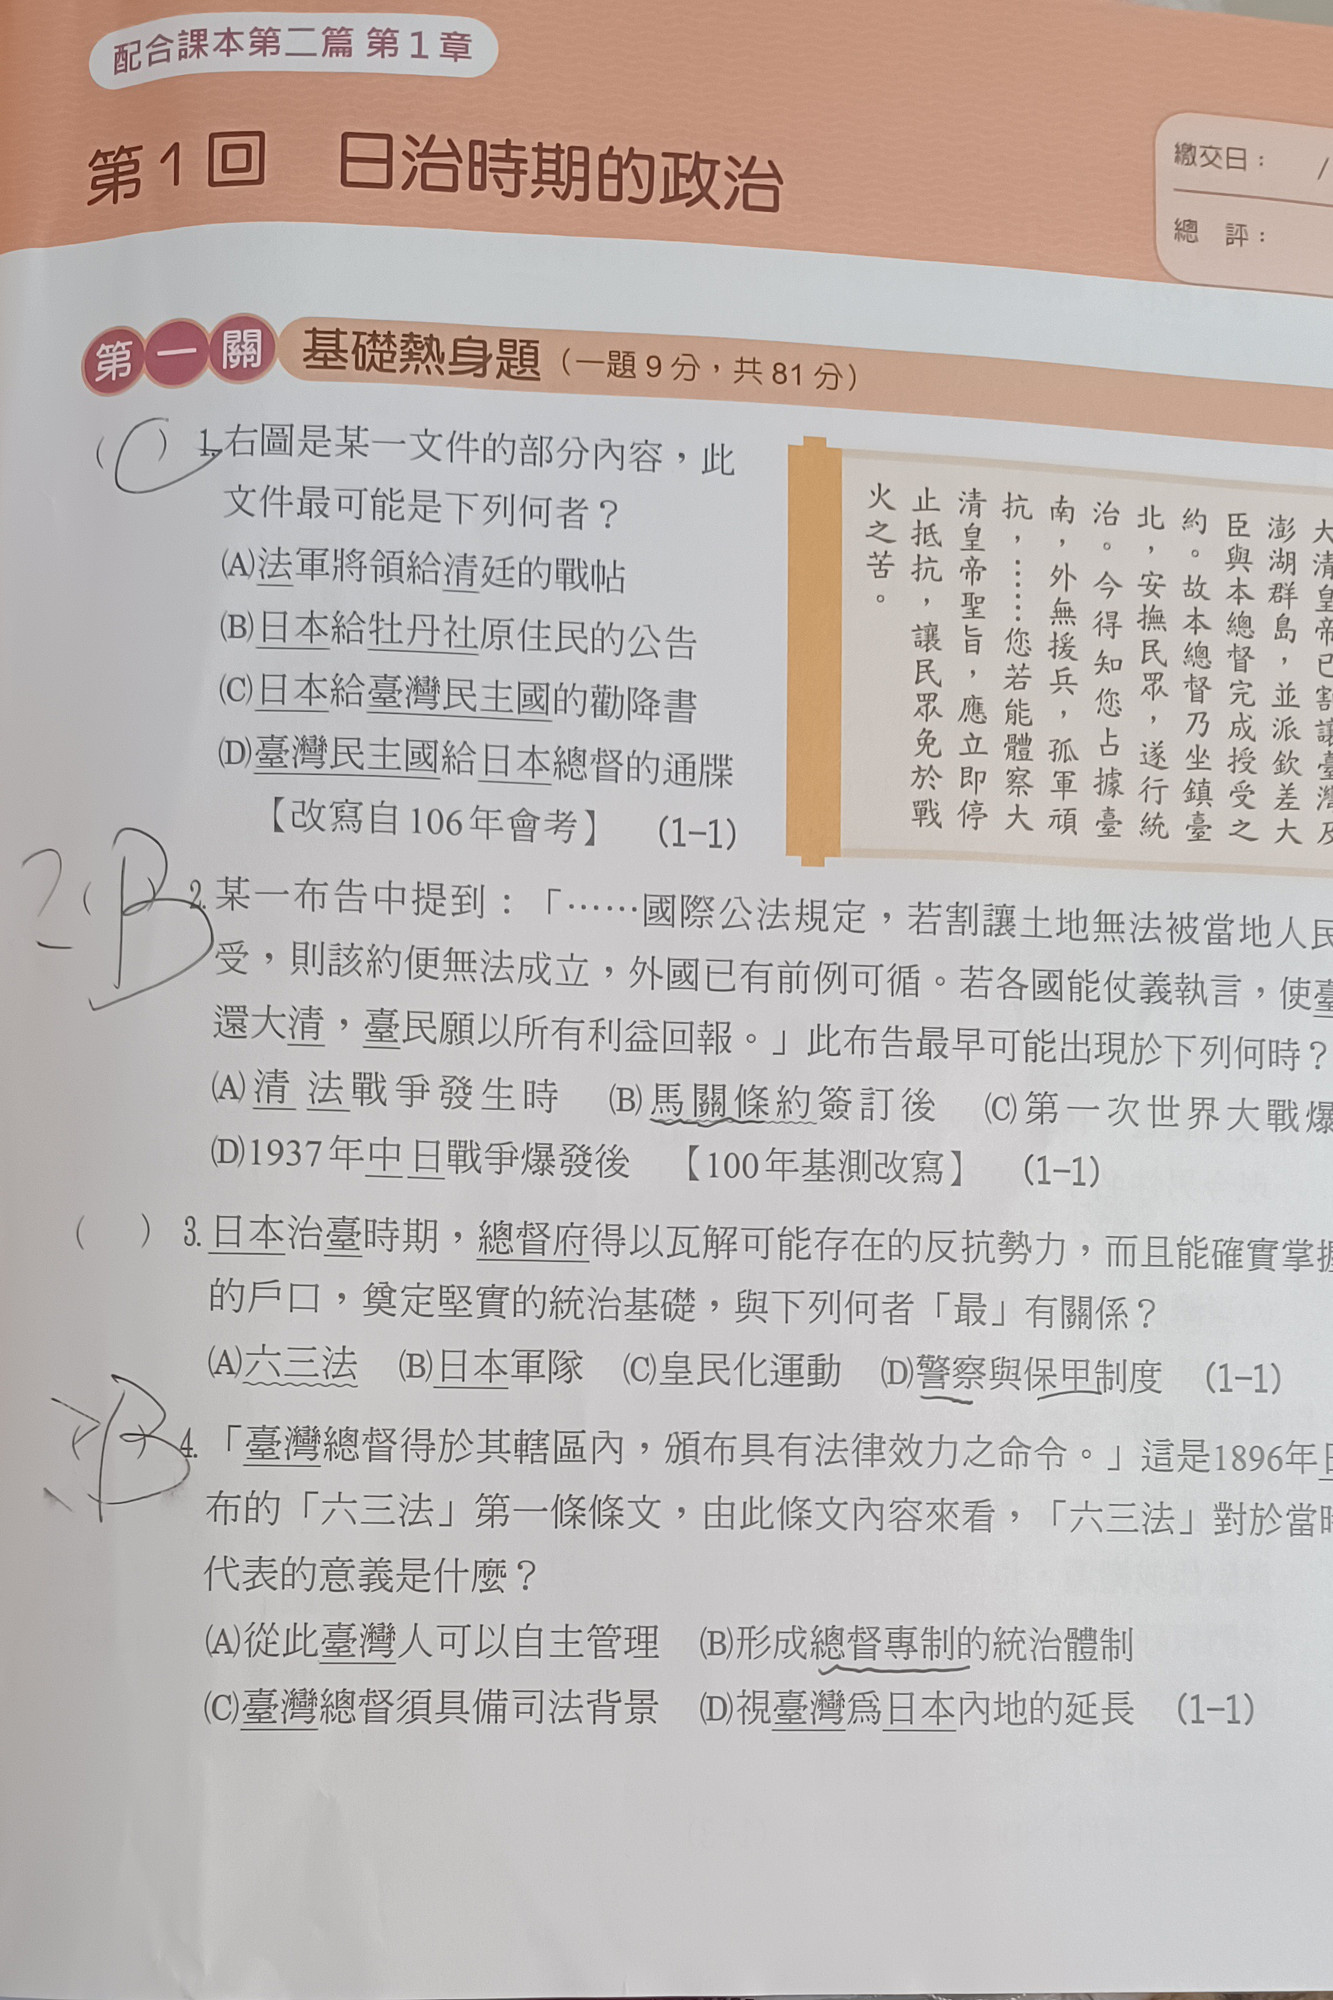 配合課本第二篇 第1章
第1回 日治時期的政治
繳交日： /
總 評：
第一關 基礎熱身題（一題9分，共81分）
(C) 1. 右圖是某一文件的部分內容，此
文件最可能是下列何者？
(A)法軍將領給清廷的戰帖
(B)日本給牡丹社原住民的公告
(C)日本給臺灣民主國的勸降書
(D)臺灣民主國給日本總督的通牒
【改寫自106年會考】 (1-1)
大清皇帝已割讓臺灣及
澎湖群島，並派欽差大
臣與本總督完成授受之
約。故本總督乃坐鎮臺
北，安撫民眾，遂行統
治。今得知您占據臺
南，外無援兵，孤軍頑
抗，……您若能體察大
清皇帝聖旨，應立即停
止抵抗，讓民眾免於戰
火之苦。
2 (B) 2. 某一布告中提到：「……國際公法規定，若割讓土地無法被當地人民
受，則該約便無法成立，外國已有前例可循。若各國能仗義執言，使臺
還大清，臺民願以所有利益回報。」此布告最早可能出現於下列何時？
(A)清 法戰爭發生時 (B)馬關條約簽訂後 (C)第一次世界大戰爆
(D)1937年中日戰爭爆發後 【100年基測改寫】 (1-1)
( ) 3. 日本治臺時期，總督府得以瓦解可能存在的反抗勢力，而且能確實掌握
的戶口，奠定堅實的統治基礎，與下列何者「最」有關係？
(A)六三法 (B)日本軍隊 (C)皇民化運動 (D)警察與保甲制度 (1-1)
(B) 4. 「臺灣總督得於其轄區內，頒布具有法律效力之命令。」這是1896年日
布的「六三法」第一條條文，由此條文內容來看，「六三法」對於當時
代表的意義是什麼？
(A)從此臺灣人可以自主管理 (B)形成總督專制的統治體制
(C)臺灣總督須具備司法背景 (D)視臺灣為日本內地的延長 (1-1)